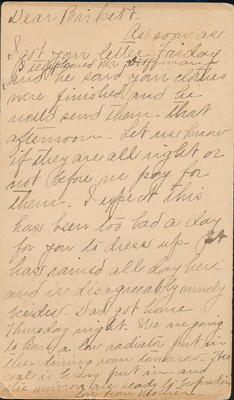 Dear Birkett.
As soon as
I got your letter Friday
I telephoned Mr. Hoffman
and he said your clothes
were finished and he
would send them that
afternoon. Let us know
if they are all right or
not before we pay for
them. I expect this
has been too bad a day
for you to dress up. It
has rained all day here
and is disagreeably muddy
besides. Dad got home
Thursday night. We are going
to have a new radiator put in
the dining room tomorrow. The
is being put in and
the mirror are ready to put in
from Mother.